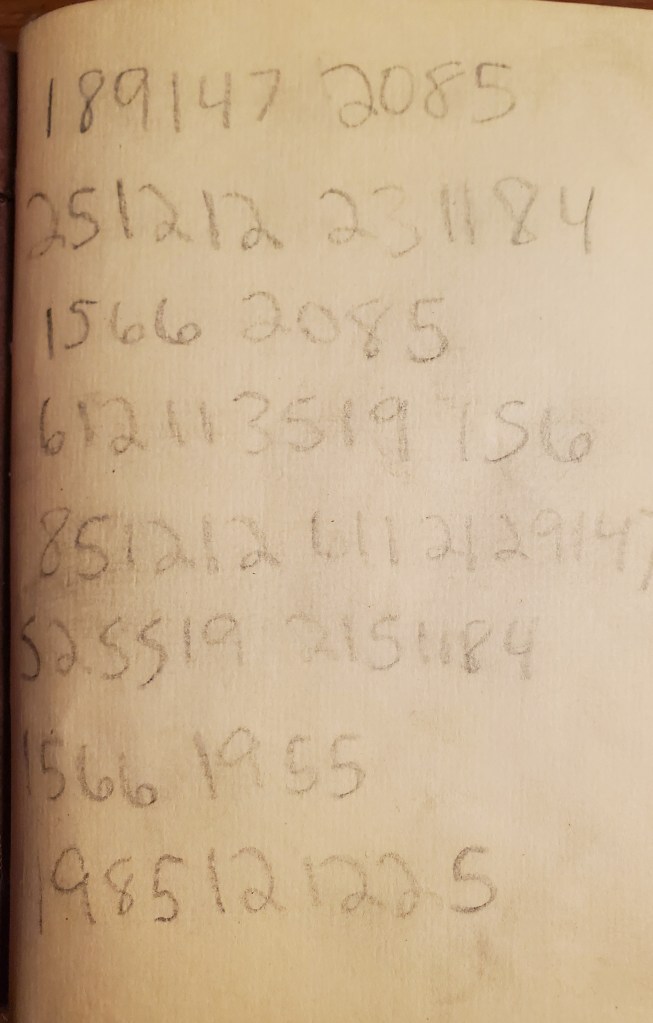 189147 2085
251212 231184
1566 2085
612113519 156
851212 6112129147
525519 2151184
1566 1955
198512 1225